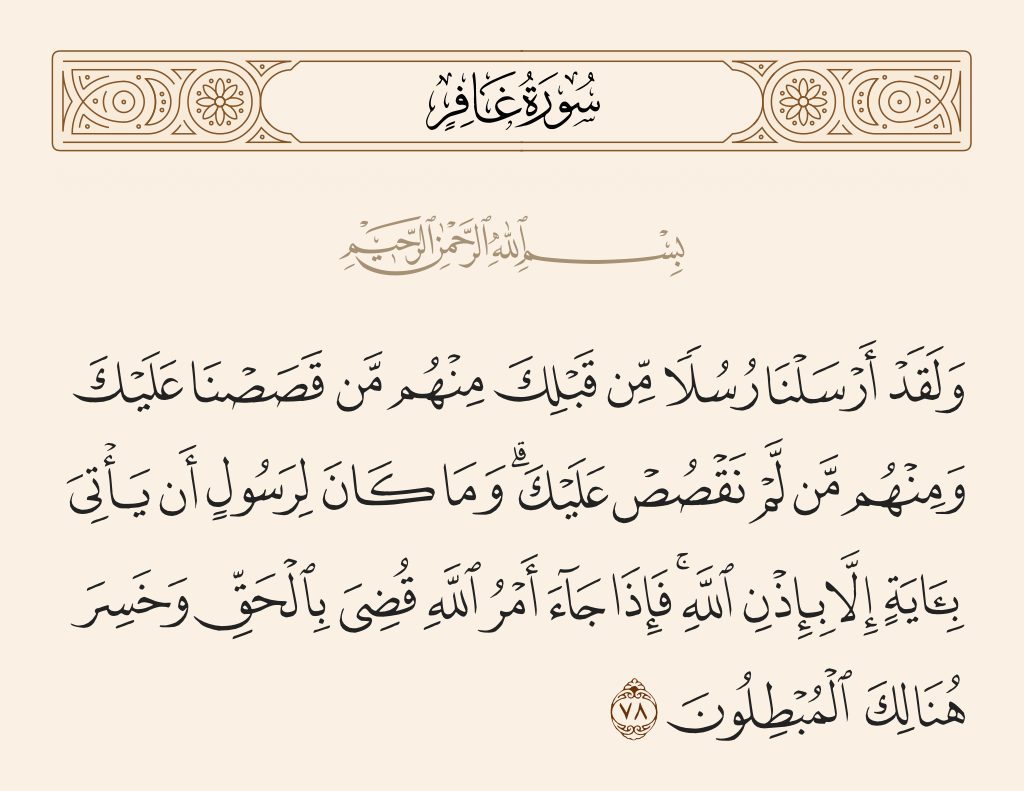 سُورَةُ غَافِرٍ
بِسْمِ ٱللَّهِ ٱلرَّحْمَٰنِ ٱلرَّحِيمِ
وَلَقَدْ أَرْسَلْنَا رُسُلًا مِّن قَبْلِكَ مِنْهُم مَّن قَصَصْنَا عَلَيْكَ
وَمِنْهُم مَّن لَّمْ نَقْصُصْ عَلَيْكَ ۗ وَمَا كَانَ لِرَسُولٍ أَن يَأْتِىَ
بِـَٔايَةٍ إِلَّا بِإِذْنِ ٱللَّهِ ۚ فَإِذَا جَآءَ أَمْرُ ٱللَّهِ قُضِىَ بِٱلْحَقِّ وَخَسِرَ
هُنَالِكَ ٱلْمُبْطِلُونَ ٧٨